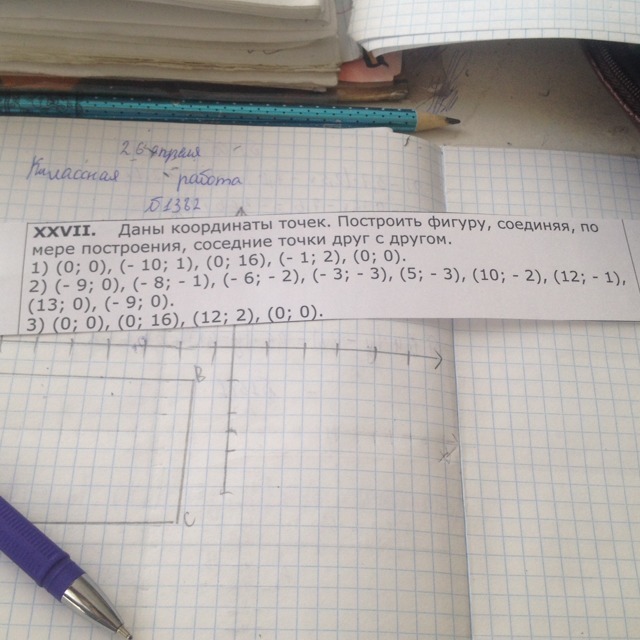 26 апреля
Классная работа
XXVII. Даны координаты точек. Построить фигуру, соединяя, по
мере построения, соседние точки друг с другом.
1) (0; 0), (- 10; 1), (0; 16), (- 1; 2), (0; 0).
2) (- 9; 0), (- 8; - 1), (- 6; - 2), (- 3; - 3), (5; - 3), (10; - 2), (12; - 1),
(13; 0), (- 9; 0).
3) (0; 0), (0; 16), (12; 2), (0; 0).
B
C